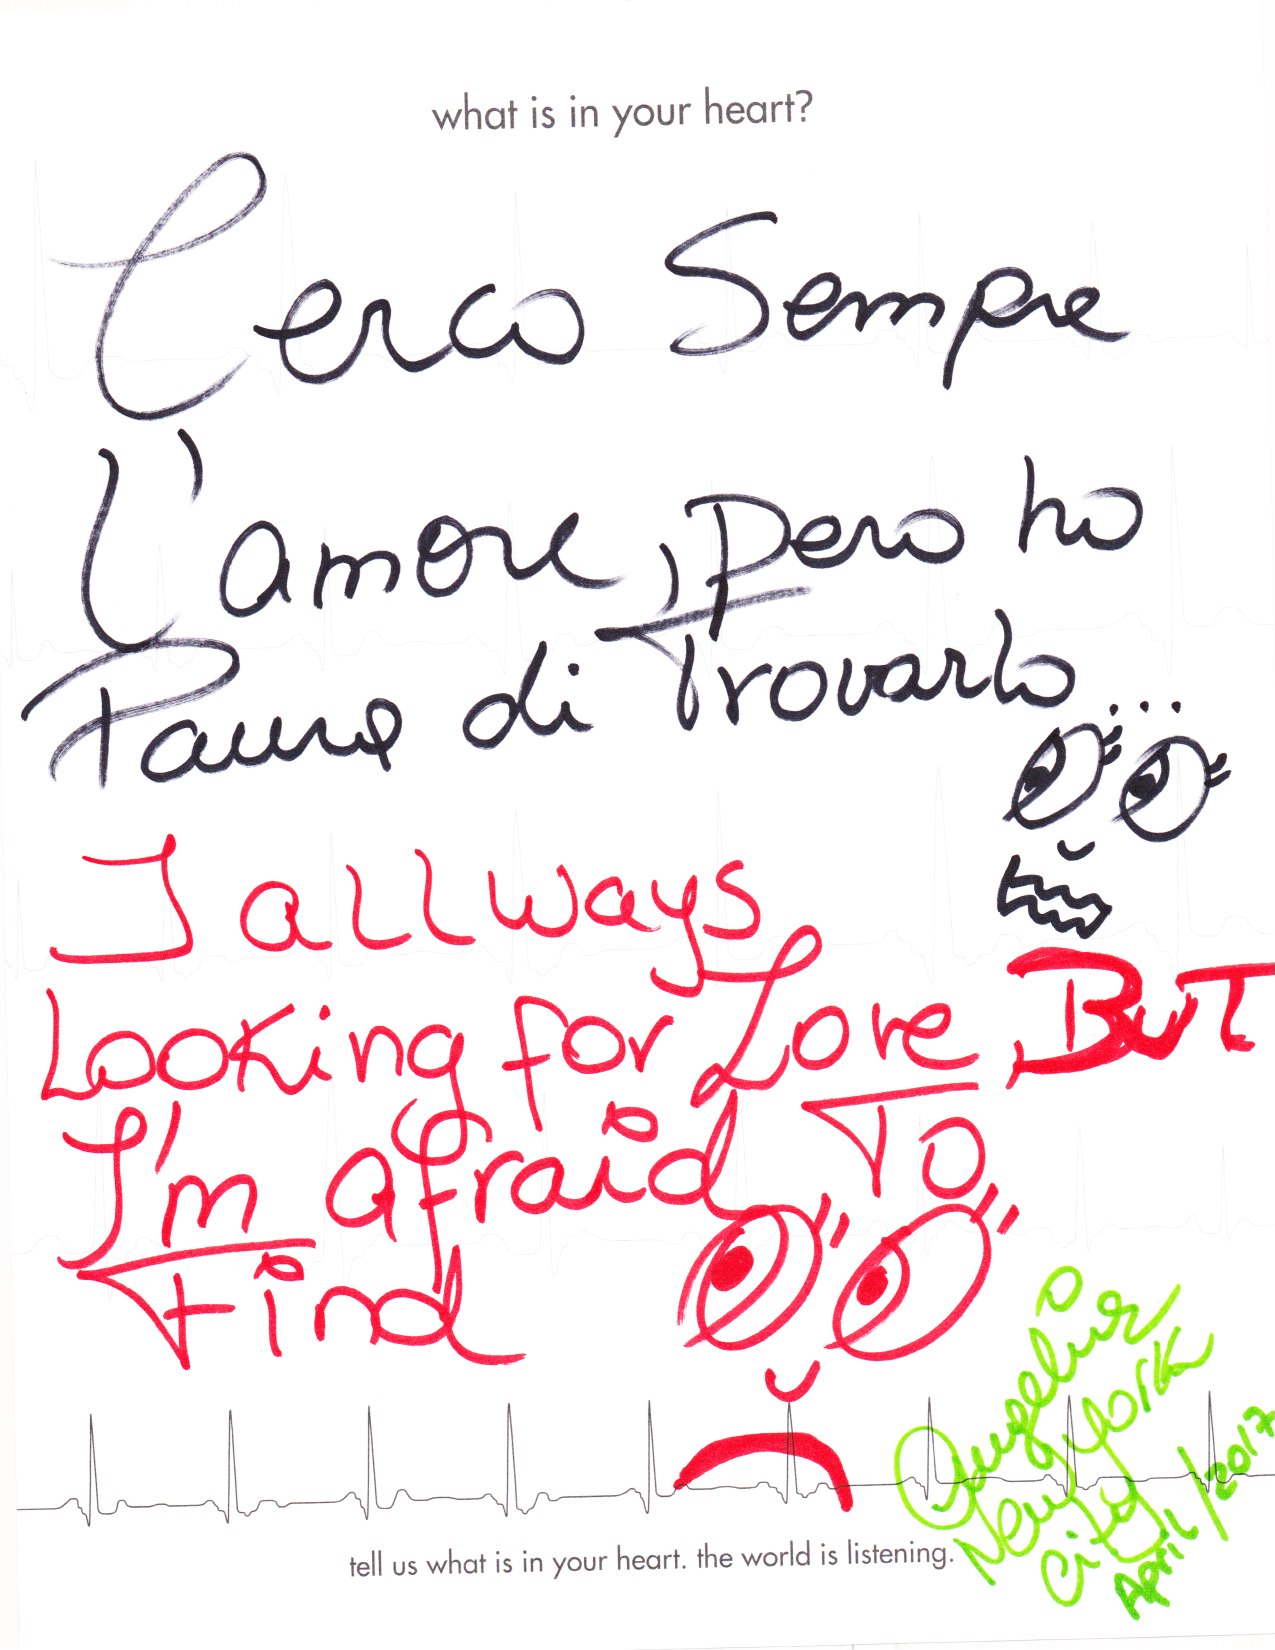 what is in your heart?
Cerco Sempre
L'amore, Pero ho
Paura di Trovarlo...
I allways
Looking for Love, BUT
I'm afraid TO
Find
tell us what is in your heart. the world is listening.
New York
City
April/2017